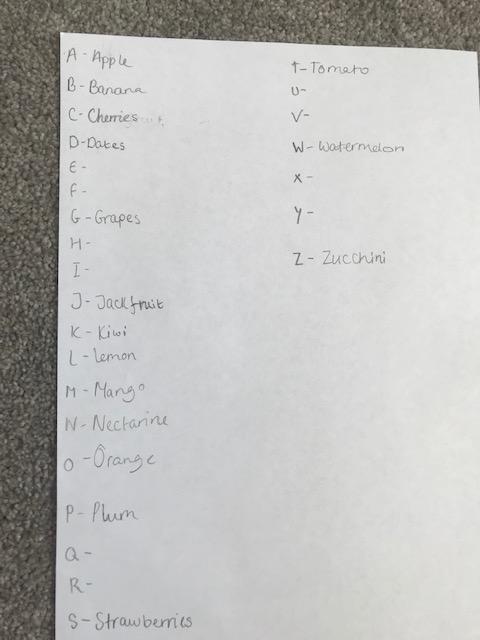 A - Apple
B - Banana
C - Cherries
D - Dates
E -
F -
G - Grapes
H -
I -
J - Jackfruit
K - Kiwi
L - Lemon
M - Mango
N - Nectarine
O - Orange
P - Plum
Q -
R -
S - Strawberries
T - Tomato
U -
V -
W - Watermelon
X -
Y -
Z - Zucchini